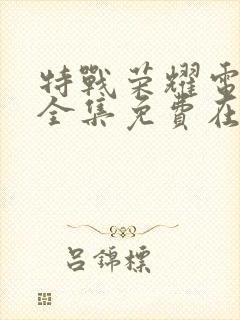 特戰荣耀電
全集免費在
吕錦標